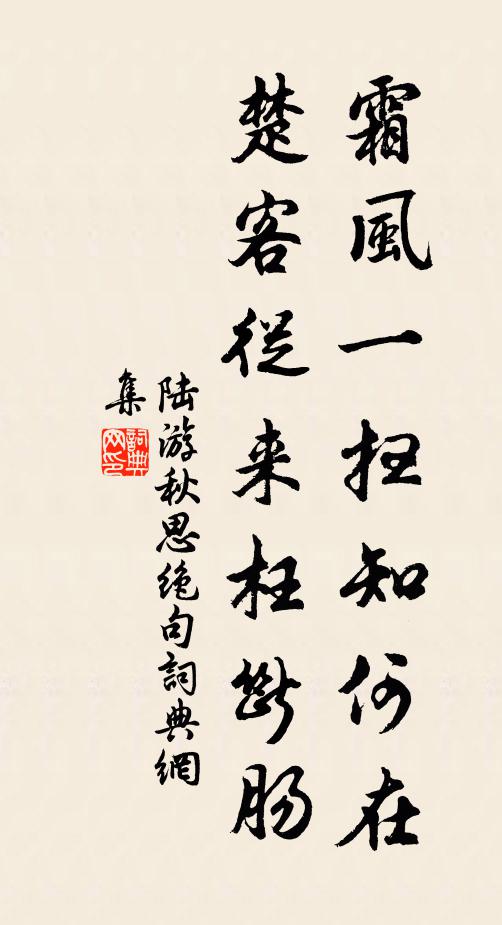 霜風一扫知何在
楚客從来枉断肠
陆游秋思绝句詞典網
集
詞典网印